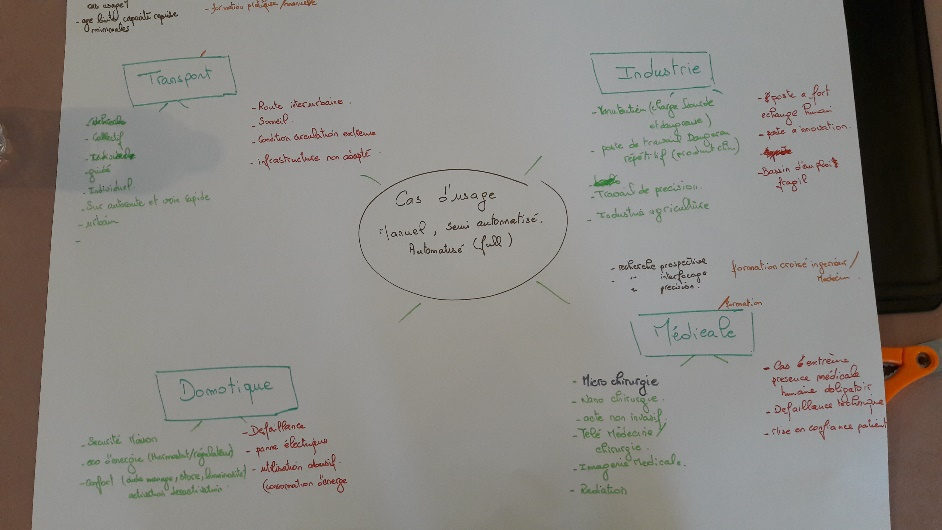 cas usage?
- age limite, capacité requise
minimales
- formation pratique / manuelle
Transport
- Collectif
- guidé
- Individuel
- Sur autoroute et voie rapide
- urbain
-
- Route interurbaine.
- Someil
- Condition circulation extreme
- infrastructure non adapté.
Industrie
- Manutention (charge lourde
et dangereuse)
- poste de travail Dangereux
répétitif (product chim)
- Travail de precision.
- Industrie agriculture
- poste a fort
echange humain
- poste a inovation.
- Bassin d'emploi
fragil
Cas d'usage
Manuel, semi automatisé.
Automatisé (full)
- recherche prospective
" interfaçage
" précision.
formation croisé ingenieur /
Medecin
formation
Médicale
- Micro chirurgie
- Nano chirurgie.
- acte non invasif.
- Télé Médecine /
chirurgie.
- Imagerie Medicale.
- Radiation
- Cas d'extrème
presence médicale
humaine obligatoir
- Defaillance technique
- Mise en confiance patient
Domotique
- Securité Maison
- eco d'énergie (thermostat/régulateur)
- Confort (aide menage, store, luminosité)
activation desactivation.
- Defaillance
- panne électrique
- utilisation abusif.
(consomation d'énergie